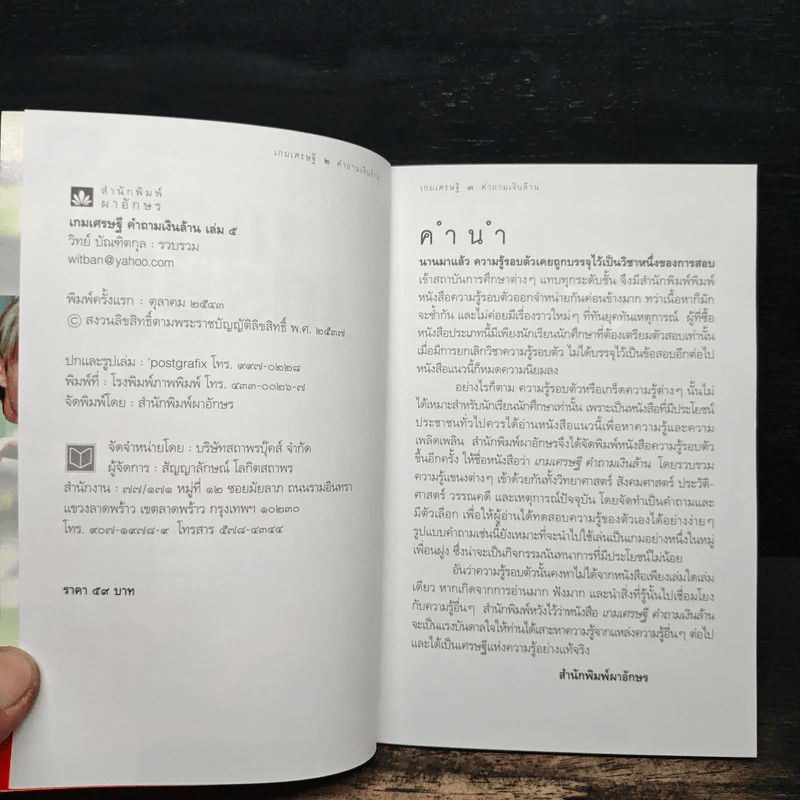 เกมเศรษฐี ๒ คำถามเงินล้าน
สำนักพิมพ์
ผาอักษร
เกมเศรษฐี คำถามเงินล้าน เล่ม ๕
วิทย์ บัณฑิตกุล : รวบรวม
witban@yahoo.com
พิมพ์ครั้งแรก : ตุลาคม ๒๕๔๓
© สงวนลิขสิทธิ์ตามพระราชบัญญัติลิขสิทธิ์ พ.ศ. ๒๕๓๗
ปกและรูปเล่ม : 'postgrafix โทร. ๙๙๗-๐๒๒๘
พิมพ์ที่ : โรงพิมพ์ภาพพิมพ์ โทร. ๔๓๓-๐๐๒๖-๗
จัดพิมพ์โดย : สำนักพิมพ์ผาอักษร
จัดจำหน่ายโดย : บริษัทสถาพรบุ๊คส์ จำกัด
ผู้จัดการ : สัญญาลักษณ์ โลกิตสถาพร
สำนักงาน : ๗๗/๑๗๑ หมู่ที่ ๑๒ ซอยมัยลาภ ถนนรามอินทรา
แขวงลาดพร้าว เขตลาดพร้าว กรุงเทพฯ ๑๐๒๓๐
โทร. ๙๐๗-๑๙๗๘-๙ โทรสาร ๕๗๘-๔๓๔๔
ราคา ๕๙ บาท
เกมเศรษฐี ๓ คำถามเงินล้าน
คำนำ
นานมาแล้ว ความรู้รอบตัวเคยถูกบรรจุไว้เป็นวิชาหนึ่งของการสอบ
เข้าสถาบันการศึกษาต่างๆ แทบทุกระดับชั้น จึงมีสำนักพิมพ์พิมพ์
หนังสือความรู้รอบตัวออกจำหน่ายกันค่อนข้างมาก ทว่าเนื้อหาก็มัก
จะซ้ำกัน และไม่ค่อยมีเรื่องราวใหม่ๆ ที่ทันยุคทันเหตุการณ์ ผู้ที่ซื้อ
หนังสือประเภทนี้มีเพียงนักเรียนนักศึกษาที่ต้องเตรียมตัวสอบเท่านั้น
เมื่อมีการยกเลิกวิชาความรู้รอบตัว ไม่ได้บรรจุไว้เป็นข้อสอบอีกต่อไป
หนังสือแนวนี้ก็หมดความนิยมลง
อย่างไรก็ตาม ความรู้รอบตัวหรือเกร็ดความรู้ต่างๆ นั้นไม่
ได้เหมาะสำหรับนักเรียนนักศึกษาเท่านั้น เพราะเป็นหนังสือที่มีประโยชน์
ประชาชนทั่วไปควรได้อ่านหนังสือแนวนี้เพื่อหาความรู้และความ
เพลิดเพลิน สำนักพิมพ์ผาอักษรจึงได้จัดพิมพ์หนังสือความรู้รอบตัว
ขึ้นอีกครั้ง ให้ชื่อหนังสือว่า เกมเศรษฐี คำถามเงินล้าน โดยรวบรวม
ความรู้แขนงต่างๆ เข้าด้วยกันทั้งวิทยาศาสตร์ สังคมศาสตร์ ประวัติ-
ศาสตร์ วรรณคดี และเหตุการณ์ปัจจุบัน โดยจัดทำเป็นคำถามและ
มีตัวเลือก เพื่อให้ผู้อ่านได้ทดสอบความรู้ของตัวเองได้อย่างง่ายๆ
รูปแบบคำถามเช่นนี้ยังเหมาะที่จะนำไปใช้เล่นเป็นเกมอย่างหนึ่งในหมู่
เพื่อนฝูง ซึ่งน่าจะเป็นกิจกรรมนันทนาการที่มีประโยชน์ไม่น้อย
อันว่าความรู้รอบตัวนั้นคงหาไม่ได้จากหนังสือเพียงเล่มใดเล่ม
เดียว หากเกิดจากการอ่านมาก ฟังมาก และนำสิ่งที่รู้นั้นไปเชื่อมโยง
กับความรู้อื่นๆ สำนักพิมพ์หวังไว้ว่าหนังสือ เกมเศรษฐี คำถามเงินล้าน
จะเป็นแรงบันดาลใจให้ท่านได้เสาะหาความรู้จากแหล่งความรู้อื่นๆ ต่อไป
และได้เป็นเศรษฐีแห่งความรู้อย่างแท้จริง
สำนักพิมพ์ผาอักษร